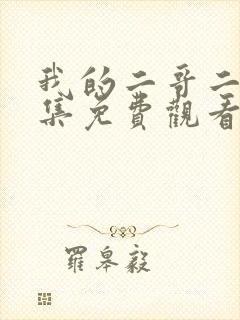 我的二哥二
集免費觀看
羅皋毅